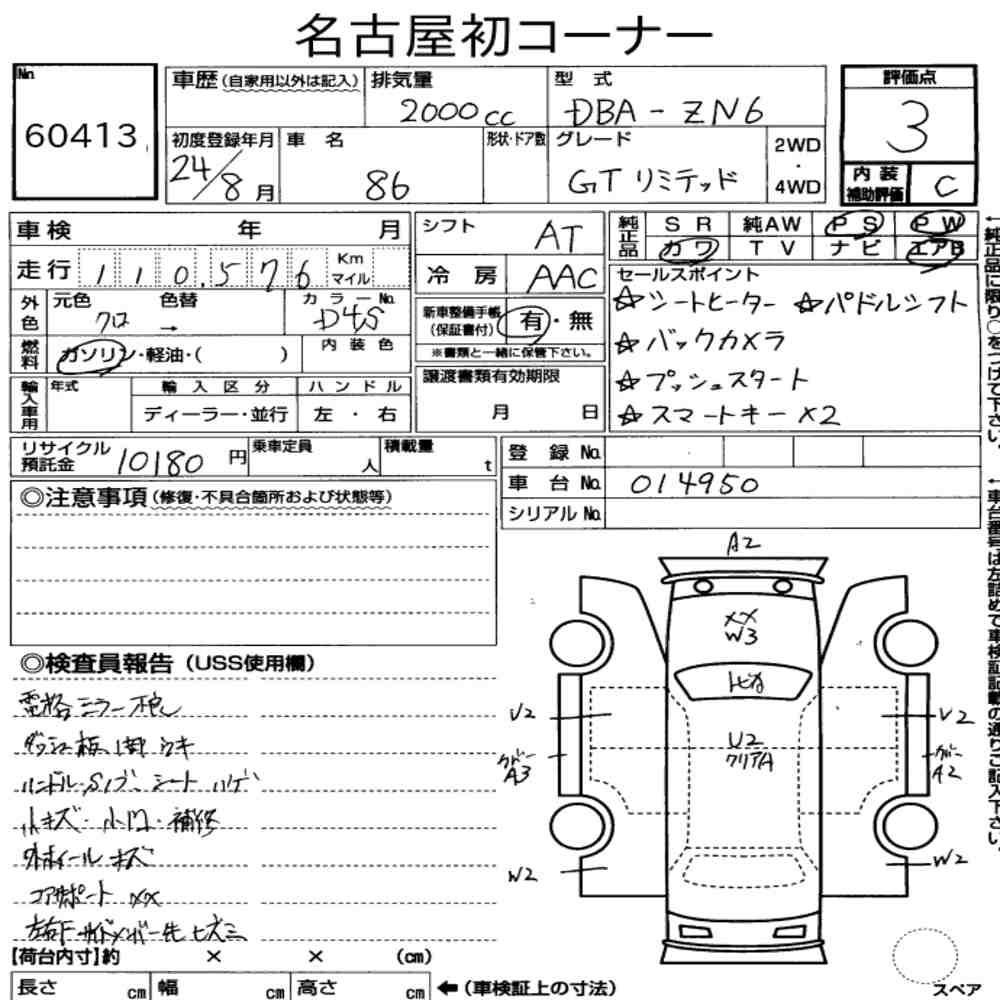 名古屋初コーナー
No. 60413
車歴（自家用以外は記入）
排気量 2000cc
型式 DBA-ZN6
評価点 3
内装補助評価 C
初度登録年月 24/8月
車名 86
形状・ドア数
グレード GTリミテッド
2WD・4WD
車検 年 月
走行 110.576 Km マイル
外色 元色 クロ 色替 →
カラーNo. D4S
内装色
燃料 ガソリン・軽油・（ ）
輸入車用 年式
輸入区分 ディーラー・並行
ハンドル 左・右
シフト AT
冷房 AAC
新車整備手帳（保証書付） 有・無
※書類と一緒に保管下さい。
譲渡書類有効期限
月 日
純正品 SR 純AW PS PW
カワ TV ナビ エアB
セールスポイント
☆シートヒーター ☆パドルシフト
☆バックカメラ
☆プッシュスタート
☆スマートキー×2
←純正品に限り○をつけて下さい。
リサイクル預託金 10180円
乗車定員 人
積載量 t
登録No.
車台No. 014950
シリアルNo.
←車台番号は左詰めで車検証記載の通りご記入下さい。
◎注意事項（修復・不具合箇所および状態等）
◎検査員報告（USS使用欄）
電格ミラー不良
ハンドル・Sノブ・シートハゲ
小キズ・小凹・補修
外ホイールキズ
コアサポートXX
左右Fサイドメンバー先ヒズミ
A2
XX
W3
トビカ
U2
クリアA
U2
カバー
A3
W2
U2
カバー
A2
W2
【荷台内寸】約 × × （cm）
長さ cm 幅 cm 高さ cm ←（車検証上の寸法）
スペア